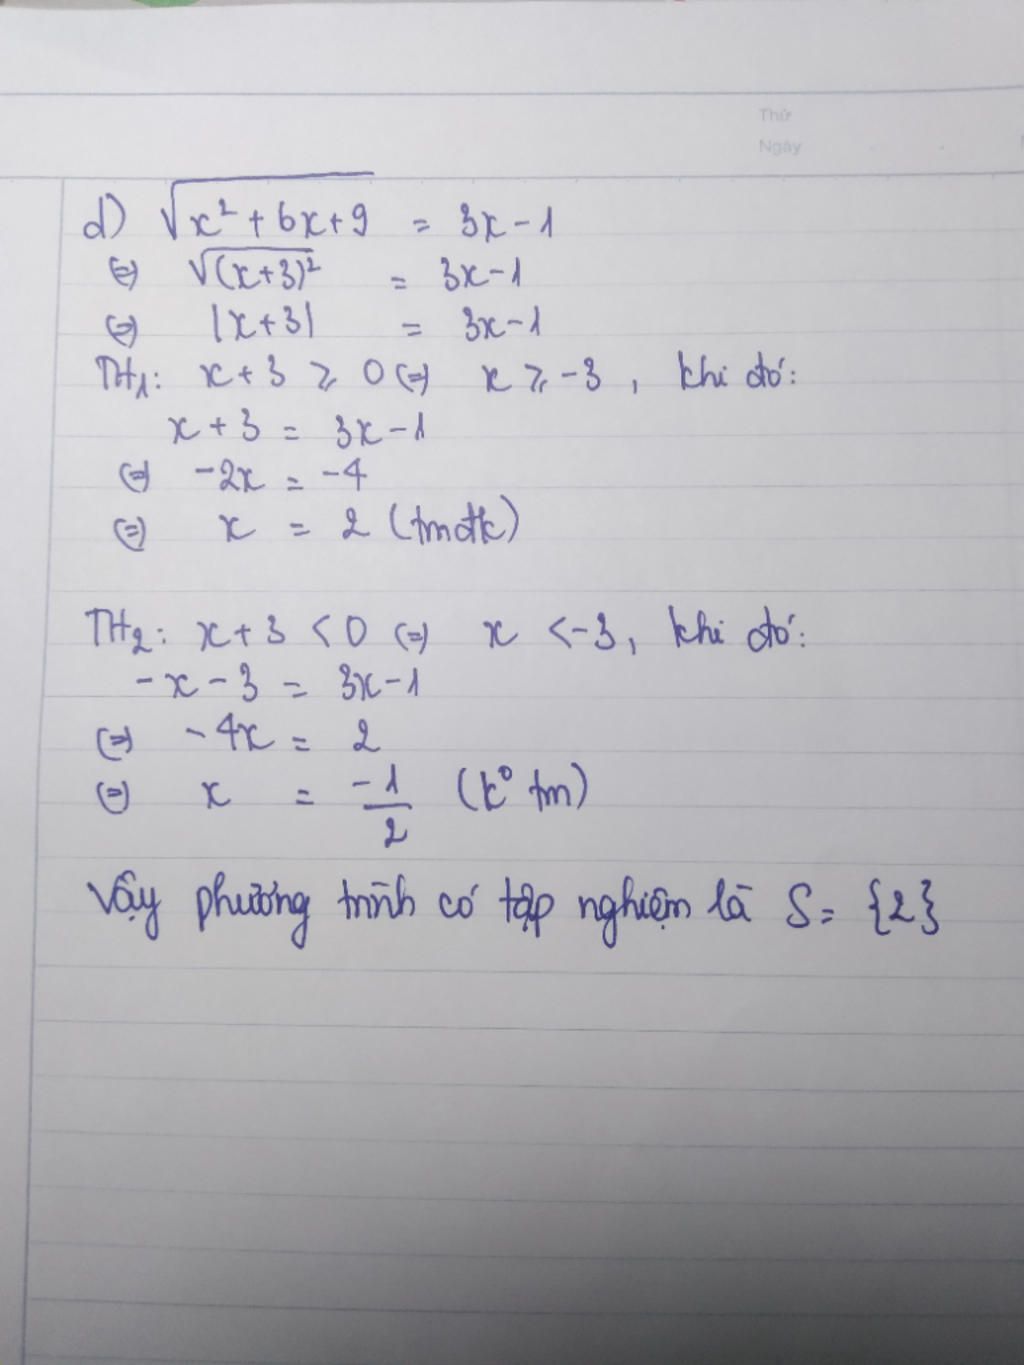 Thứ
Ngày
d) √(x² + 6x + 9) = 3x - 1
(=) √(x+3)² = 3x - 1
(=) |x+3| = 3x - 1
TH1: x + 3 ⩾ 0 (=) x ⩾ -3, khi đó:
x + 3 = 3x - 1
(=) -2x = -4
(=) x = 2 (tmđk)
TH2: x + 3 < 0 (=) x < -3, khi đó:
-x - 3 = 3x - 1
(=) -4x = 2
(=) x = -1/2 (k° tm)
Vậy phương trình có tập nghiệm là S = {2}